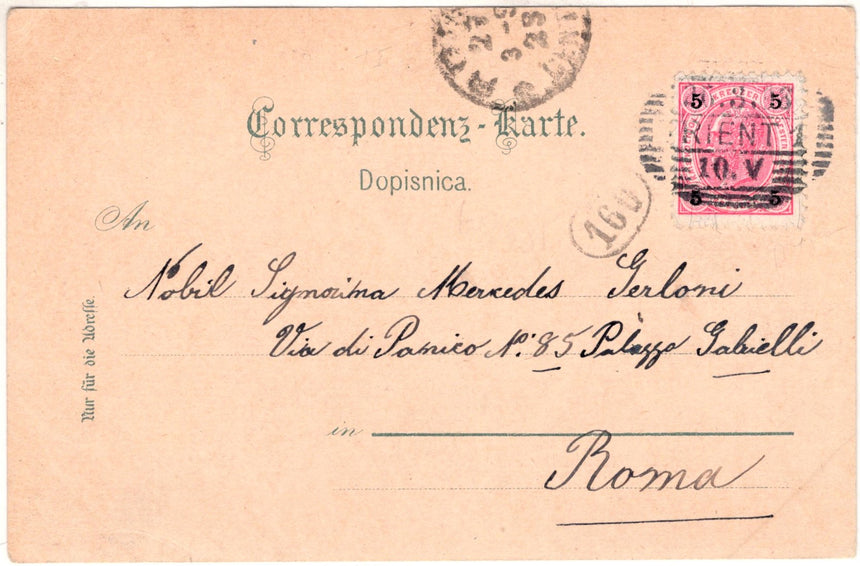 Correspondenz-Karte.
Dopisnica.
An
5 KREUZER 5
RIENT 1
10. V
5 5
160
Nobil Signorina Mercedes Gerloni
Via di Panico Nº 85 Palazzo Gabrielli
in
Roma
Nur für die Adresse.